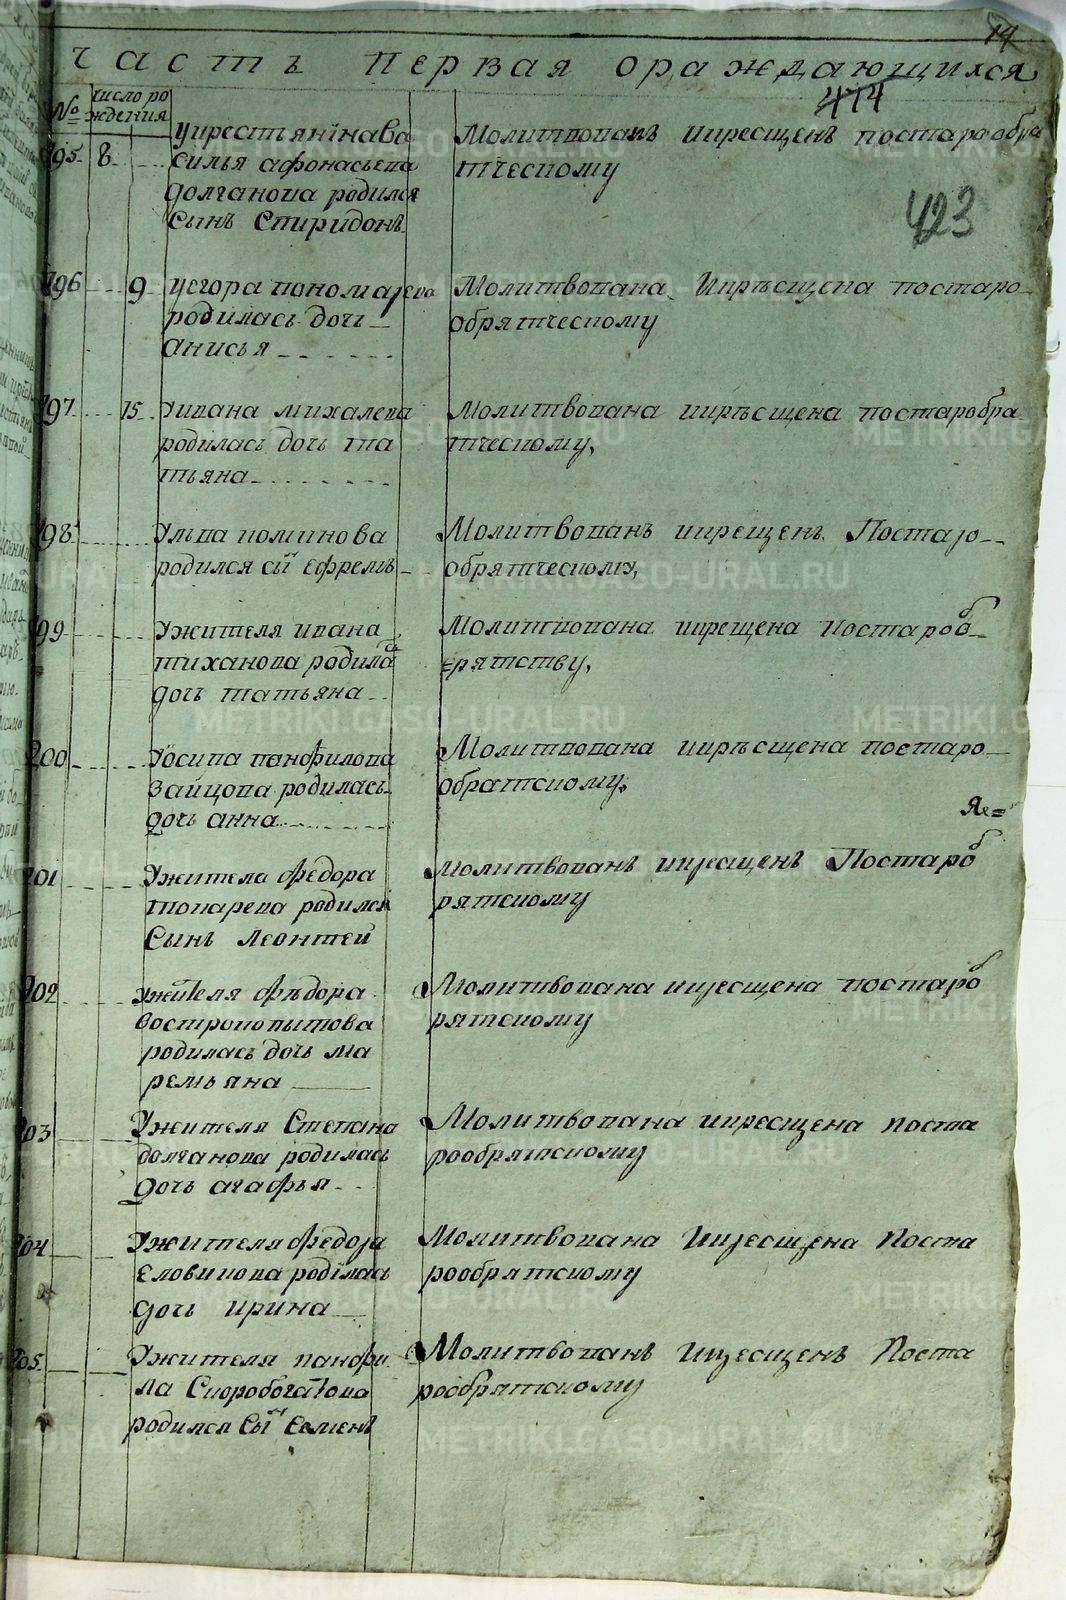 14
часть первая ораждающихся
414
423
№ число ро
ждения
195 8 укрестьянинава
силья афонасьева
долганова родился
Сынъ Спиридонъ
Молитвованъ икресщенъ постарообря
тческому
196 9 уегора пономарева
родилась дочь
анисья
Молитвована Икръсщена постаро
обрятческому
197 15 Уивана михалева
родилась дочь та
тьяна
Молитвована икръсщена постаробра
тческому,
198 Ульва
родился сы ефремъ
Молитвованъ икрещенъ Постаро
обрятческому,
199 Ужителя ивана
тиханова родила
дочь татьяна
Молитвована икрещена Постароб
рятству,
200 Уосипа панфилова
Зайцова родилась
дочь анна
Молитвована икръсщена постаро
обратскому,
201 Ужителя федора
токарева родился
Сынъ Леонтей
Молитвованъ икресщенъ Постароб
рятскому
202 ужителя фъдора
востропопытова
родилась дочь ма
ремьяна
Молитвована икресщена постароб
рятскому
203 Ужителя Степана
долганова родилась
дочь агафья
Молитвована икресщена поста
рообрятскому
204 Ужителя федора
еловикова родилась
дочь ирина
Молитвована Икресщена Поста
рообрятскому
205 Ужителя панфи
ла Скоробогатова
родился Сы Семенъ
Молитвованъ Икресщенъ Поста
рообрятскому
METRIKI.GASO-URAL.RU